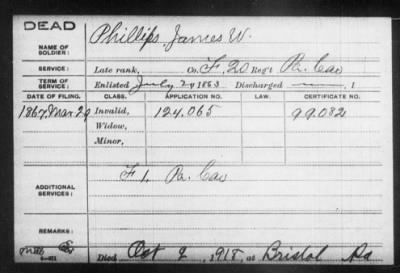 DEAD
NAME OF SOLDIER: Phillips, James W.
SERVICE: Late rank, Co. F, 20 Reg't Pa. Cav
TERM OF SERVICE: Enlisted July 1863 Discharged , 1
DATE OF FILING. CLASS. APPLICATION NO. LAW. CERTIFICATE NO.
1867, Mar 29 Invalid, 124.065 99.082
Widow,
Minor,
ADDITIONAL SERVICES: F 1. Pa. Cav
REMARKS:
Died Oct 9, 1918, at Bristol Pa